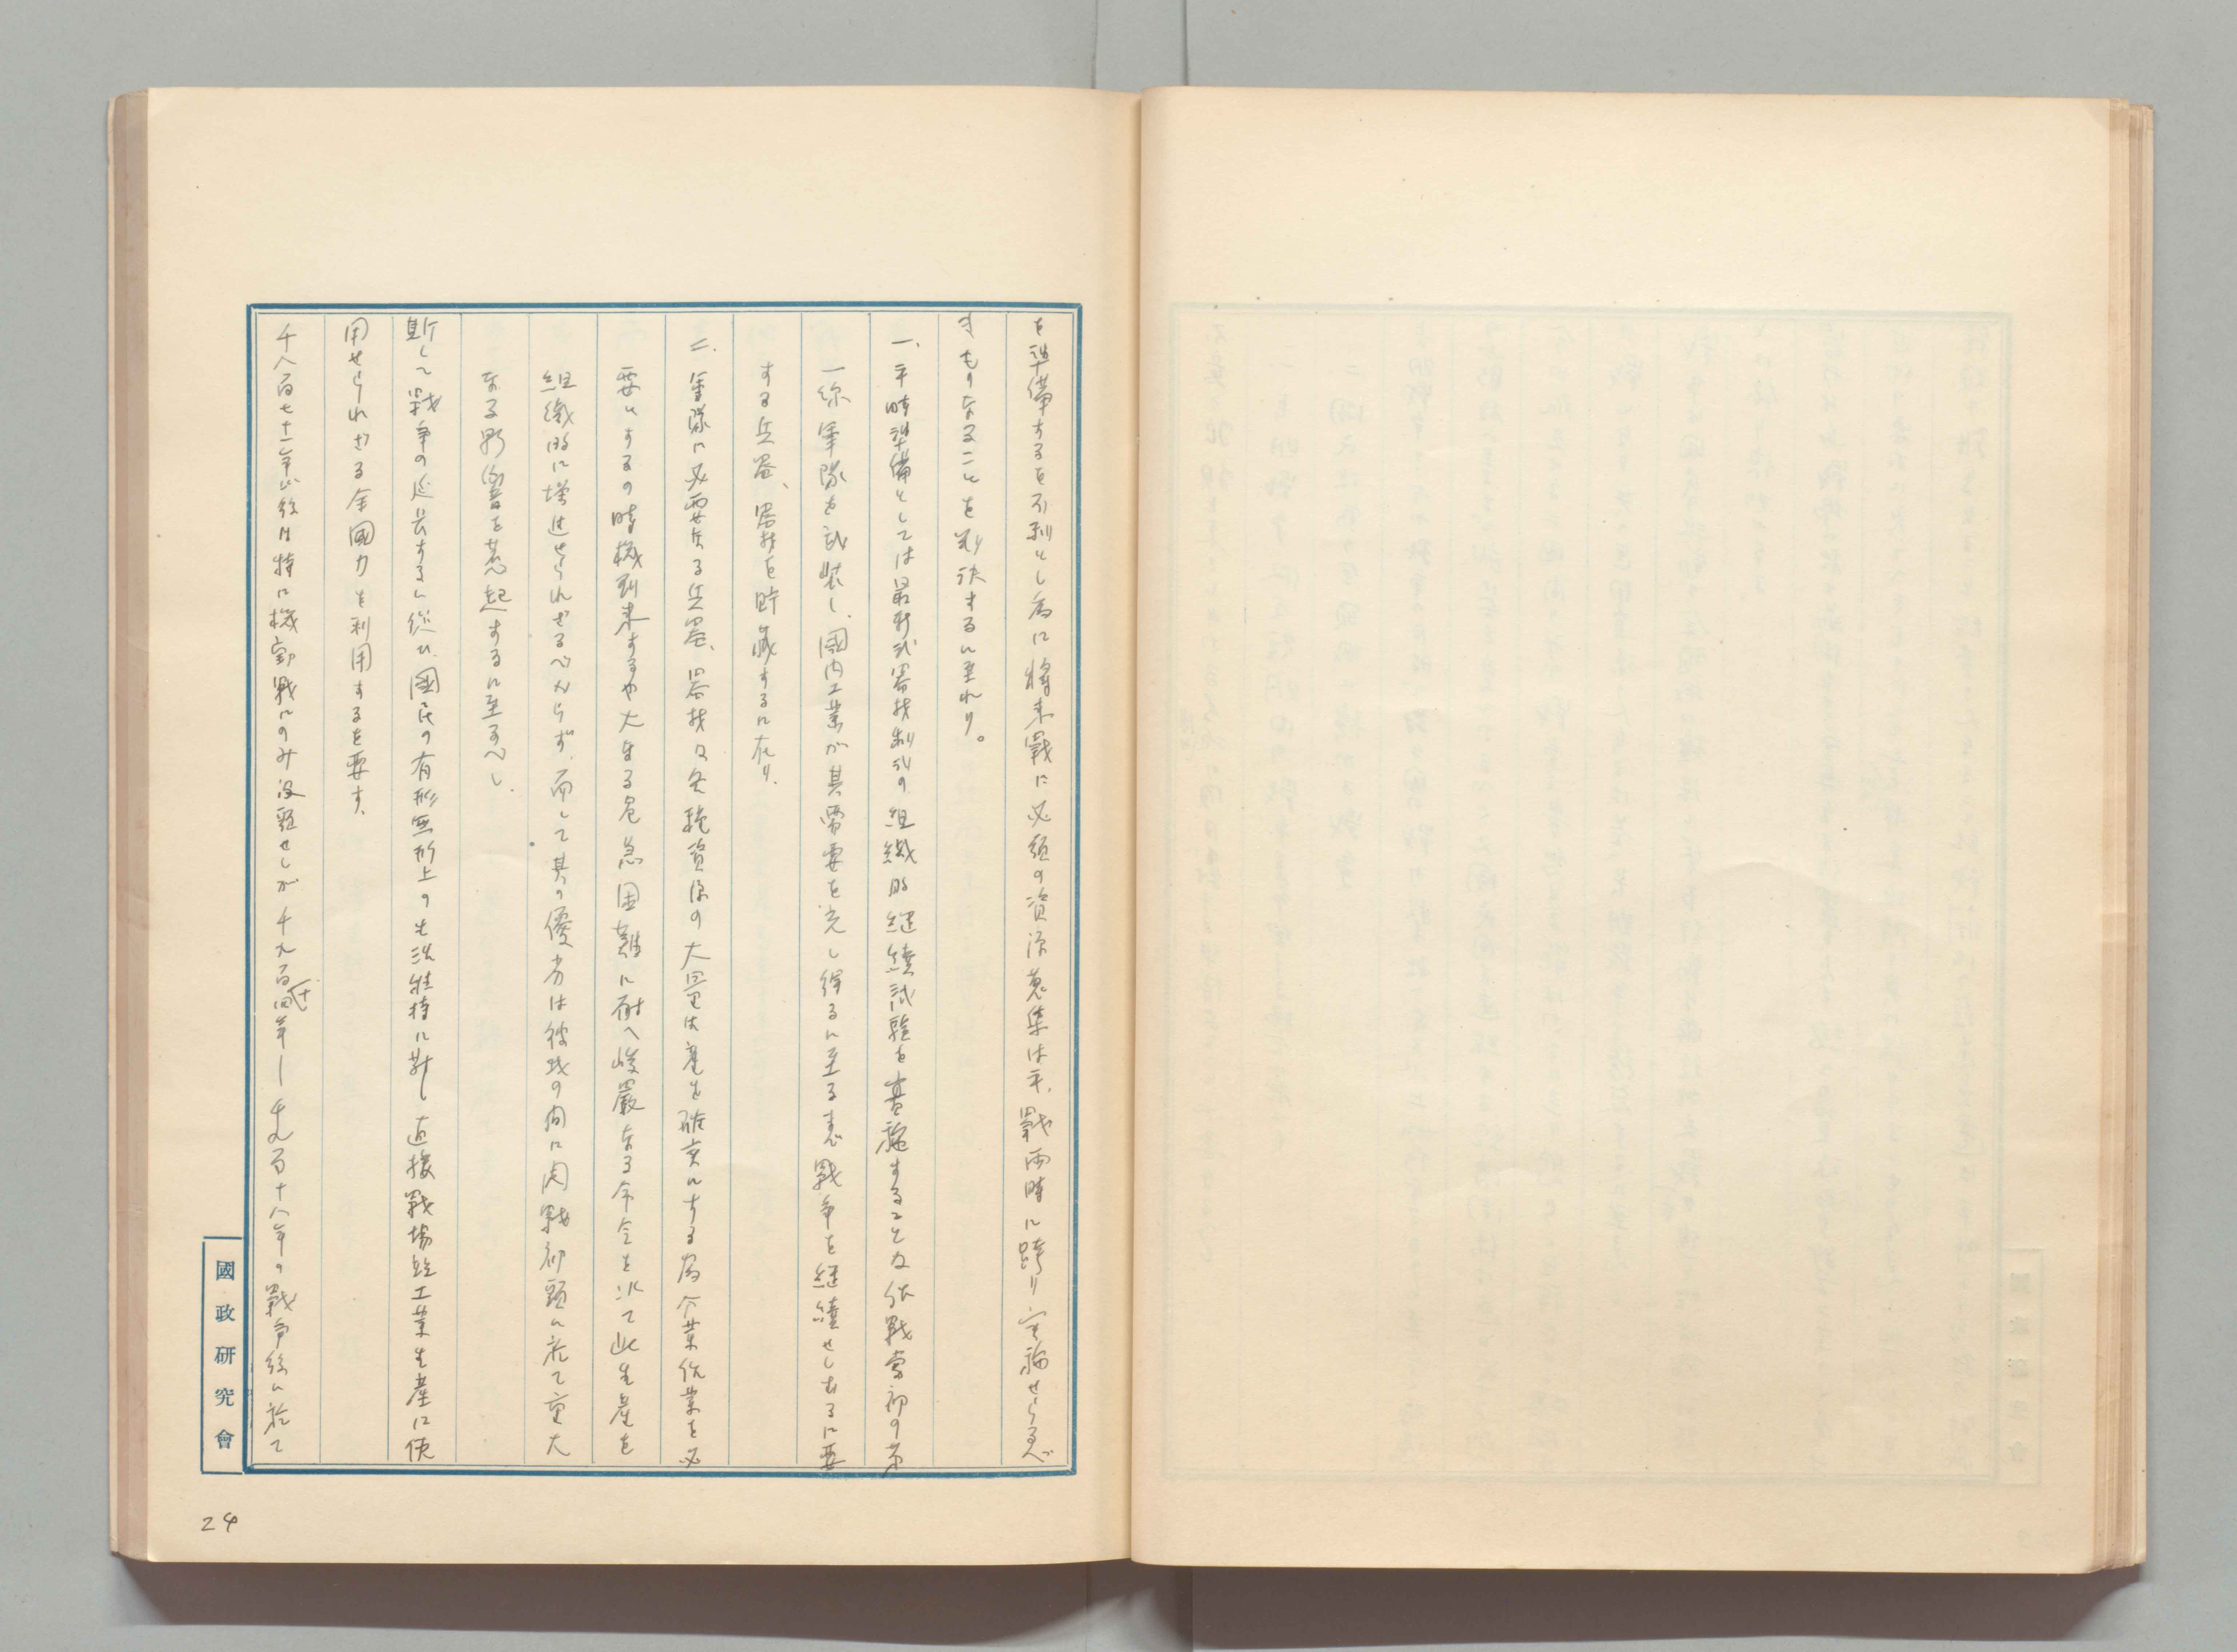 を準備するを有利とし為に将来戰に必須の資源蒐集は平、戰両時に跨り実施せらるべ
きものなることを判決するに至れり。
一、平時準備としては最新式器材制式の組織的継續試驗を実施すること及作戰當初の第
一線軍隊を武装し、國内工業が其需要を充し得るに至る迄戰争を継續せしむるに要
する兵器、器材を貯蔵するに在り、
二、軍隊に必要なる兵器、器材及各種資源の大量生産を確実にする為企業作業を必
要とするの時機到来するや大なる危急困難に耐へ峻嚴なる命令を以て此生産を
組織的に増進せられざるべからず、而して其の優劣は彼我の間に開戰初頭に於て重大
なる影響を惹起するに至るべし、
斯して戰争の延長するに從ひ、國民の有形無形上の生活維持に對し直接戰場竝工業生産に使
用せられざる全國力を利用するを要す、
千八百七十一年以後は特に機動戰にのみ没頭せしが千九百十四年ー千九百十八年の戰争後に於て
國政研究會
24